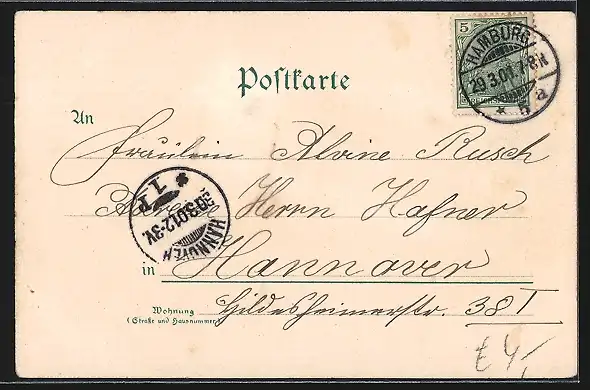 5
HAMBURG
29.3.01.7-8N
* 5 a
Postkarte
An
Fräulein Alvine Rusch
Herrn Hafner
HANNOVER
30.3.01.2-3V
* 1.
in Hannover
Wohnung
(Straße und Hausnummer)
Hildesheimerstr. 38 I